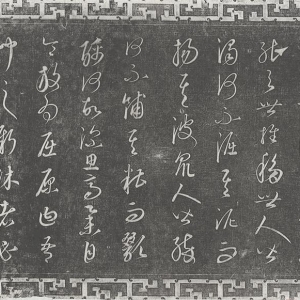 能與世推移世人皆
濁何不淈其泥而
揚其波眾人皆醉
何不餔其糟而歠
醨何故深思高舉自
令放為屈原曰吾
聞之新沐者必